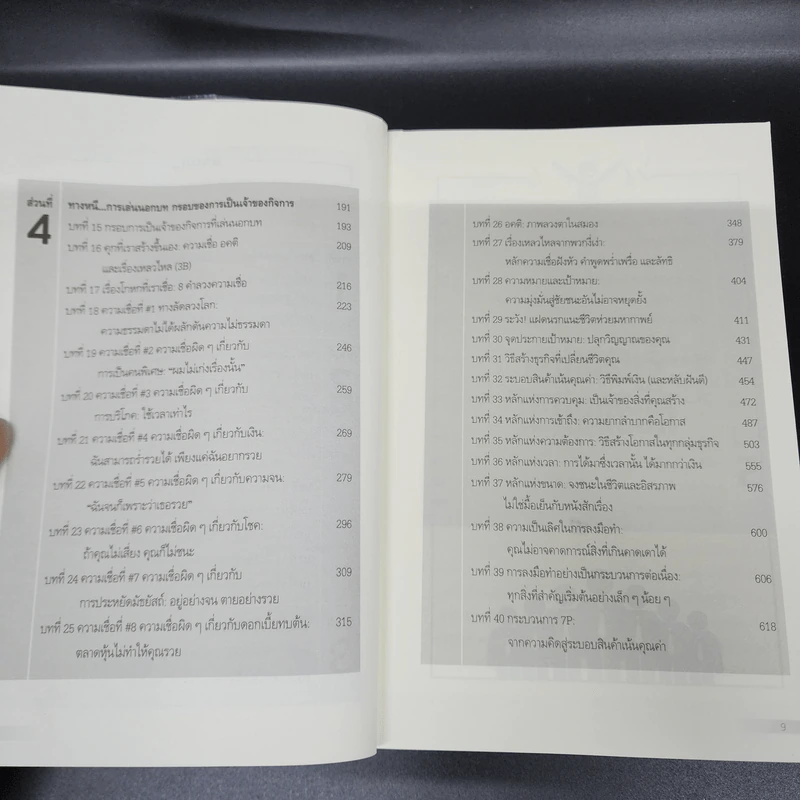 ส่วนที่ 4
ทางหนี...การเล่นนอกบท กรอบของการเป็นเจ้าของกิจการ 191
บทที่ 15 กรอบการเป็นเจ้าของกิจการที่เล่นนอกบท 193
บทที่ 16 คุกที่เราสร้างขึ้นเอง: ความเชื่อ อคติ 209
และเรื่องเหลวไหล (3B)
บทที่ 17 เรื่องโกหกที่เราเชื่อ: 8 คำลวงความเชื่อ 216
บทที่ 18 ความเชื่อที่ #1 ทางลัดลวงโลก: 223
ความธรรมดาไม่ได้ผลักดันความไม่ธรรมดา
บทที่ 19 ความเชื่อที่ #2 ความเชื่อผิด ๆ เกี่ยวกับ 246
การเป็นคนพิเศษ: "ผมไม่เก่งเรื่องนั้น"
บทที่ 20 ความเชื่อที่ #3 ความเชื่อผิด ๆ เกี่ยวกับ 259
การบริโภค: ใช้เวลาเท่าไร
บทที่ 21 ความเชื่อที่ #4 ความเชื่อผิด ๆ เกี่ยวกับเงิน: 269
ฉันสามารถร่ำรวยได้ เพียงแค่ฉันอยากรวย
บทที่ 22 ความเชื่อที่ #5 ความเชื่อผิด ๆ เกี่ยวกับความจน: 279
"ฉันจนก็เพราะว่าเธอรวย"
บทที่ 23 ความเชื่อที่ #6 ความเชื่อผิด ๆ เกี่ยวกับโชค: 296
ถ้าคุณไม่เสี่ยง คุณก็ไม่ชนะ
บทที่ 24 ความเชื่อที่ #7 ความเชื่อผิด ๆ เกี่ยวกับ 309
การประหยัดมัธยัสถ์: อยู่อย่างจน ตายอย่างรวย
บทที่ 25 ความเชื่อที่ #8 ความเชื่อผิด ๆ เกี่ยวกับดอกเบี้ยทบต้น: 315
ตลาดหุ้นไม่ทำให้คุณรวย
บทที่ 26 อคติ: ภาพลวงตาในสมอง 348
บทที่ 27 เรื่องเหลวไหลจากพวกงี่เง่า: 379
หลักความเชื่อฝังหัว คำพูดพร่ำเพรื่อ และลัทธิ
บทที่ 28 ความหมายและเป้าหมาย: 404
ความมุ่งมั่นสู่ชัยชนะอันไม่อาจหยุดยั้ง
บทที่ 29 ระวัง! แฝดนรกแนะชีวิตห่วยมหากาพย์ 411
บทที่ 30 จุดประกายเป้าหมาย: ปลุกวิญญาณของคุณ 431
บทที่ 31 วิธีสร้างธุรกิจที่เปลี่ยนชีวิตคุณ 447
บทที่ 32 ระบอบสินค้าเน้นคุณค่า: วิธีพิมพ์เงิน (และหลับฝันดี) 454
บทที่ 33 หลักแห่งการควบคุม: เป็นเจ้าของสิ่งที่คุณสร้าง 472
บทที่ 34 หลักแห่งการเข้าถึง: ความยากลำบากคือโอกาส 487
บทที่ 35 หลักแห่งความต้องการ: วิธีสร้างโอกาสในทุกกลุ่มธุรกิจ 503
บทที่ 36 หลักแห่งเวลา: การได้มาซึ่งเวลานั้น ได้มากกว่าเงิน 555
บทที่ 37 หลักแห่งขนาด: จงชนะในชีวิตและอิสรภาพ 576
ไม่ใช่มื้อเย็นกับหนังสักเรื่อง
บทที่ 38 ความเป็นเลิศในการลงมือทำ: 600
คุณไม่อาจคาดการณ์สิ่งที่เกินคาดเดาได้
บทที่ 39 การลงมือทำอย่างเป็นกระบวนการต่อเนื่อง: 606
ทุกสิ่งที่สำคัญเริ่มต้นอย่างเล็ก ๆ น้อย ๆ
บทที่ 40 กระบวนการ 7P: 618
จากความคิดสู่ระบอบสินค้าเน้นคุณค่า
9